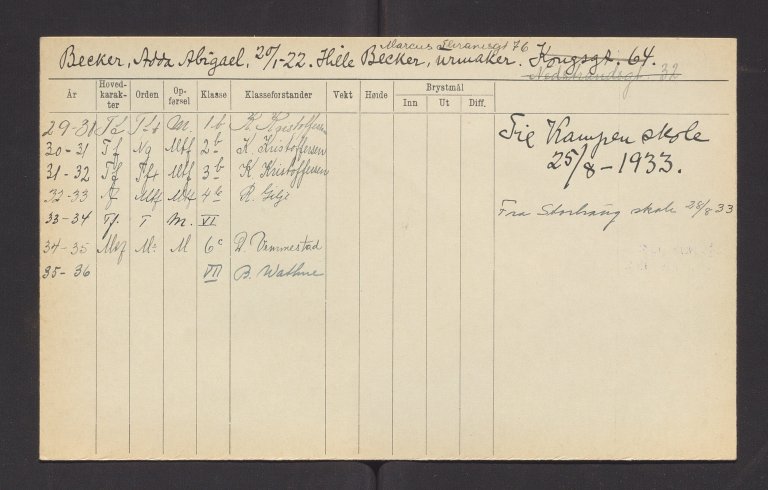 Marcus Thranesgt 76
Becker, Adda Abigael, 20/1-22. Hille Becker, urmaker. Kongsgt. 64.
32
År Hoved-karak-ter Orden Op-førsel Klasse Klasseforstander Vekt Høide Brystmål
Inn Ut Diff.
29-30 M. 1b K. Kristoffersen
30-31 Tf Ng Mtf 2b K. Kristoffersen
31-32 Tf Mtf 3b K. Kristoffersen
32-33 Mtf Mtf 4b R. Gilje
33-34 Tf. T M. VI
34-35 M 6c D. Vemmestad
35-36 VII B. Wathne
Til Kampen skole
25/8-1933.
Fra Storhaug skole 28/8 33